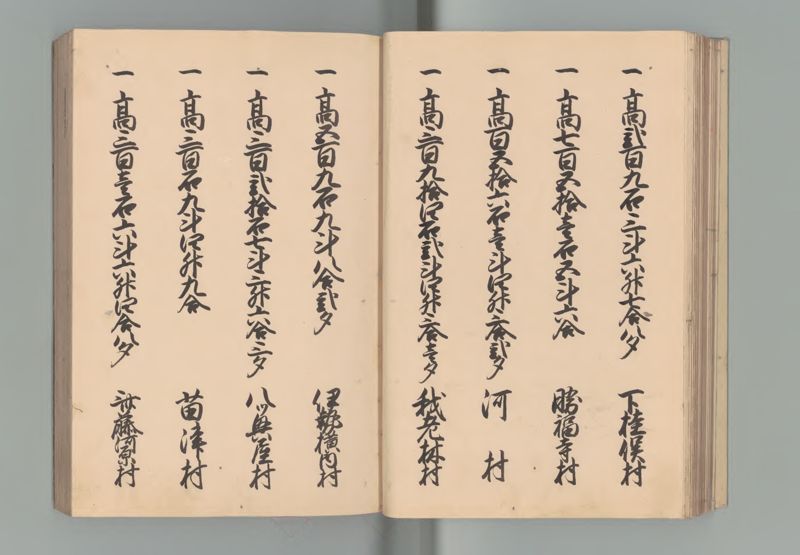 一 高弐百九石三斗六升七合八夕 下桂俣村
一 高七百五拾壱石五斗六合 勝福寺村
一 高百五拾六石壱斗四升三合弐夕 河村
一 高三百九拾四石弐斗四升三合壱夕 村
一 高五百九石九斗八合弐夕 伊勢横内村
一 高三百弐拾石七斗三升六合三夕 八ツ興屋村
一 高三百石九斗四升九合 苗津村
一 高三百壱石六斗六升四合八夕 斎藤河原村